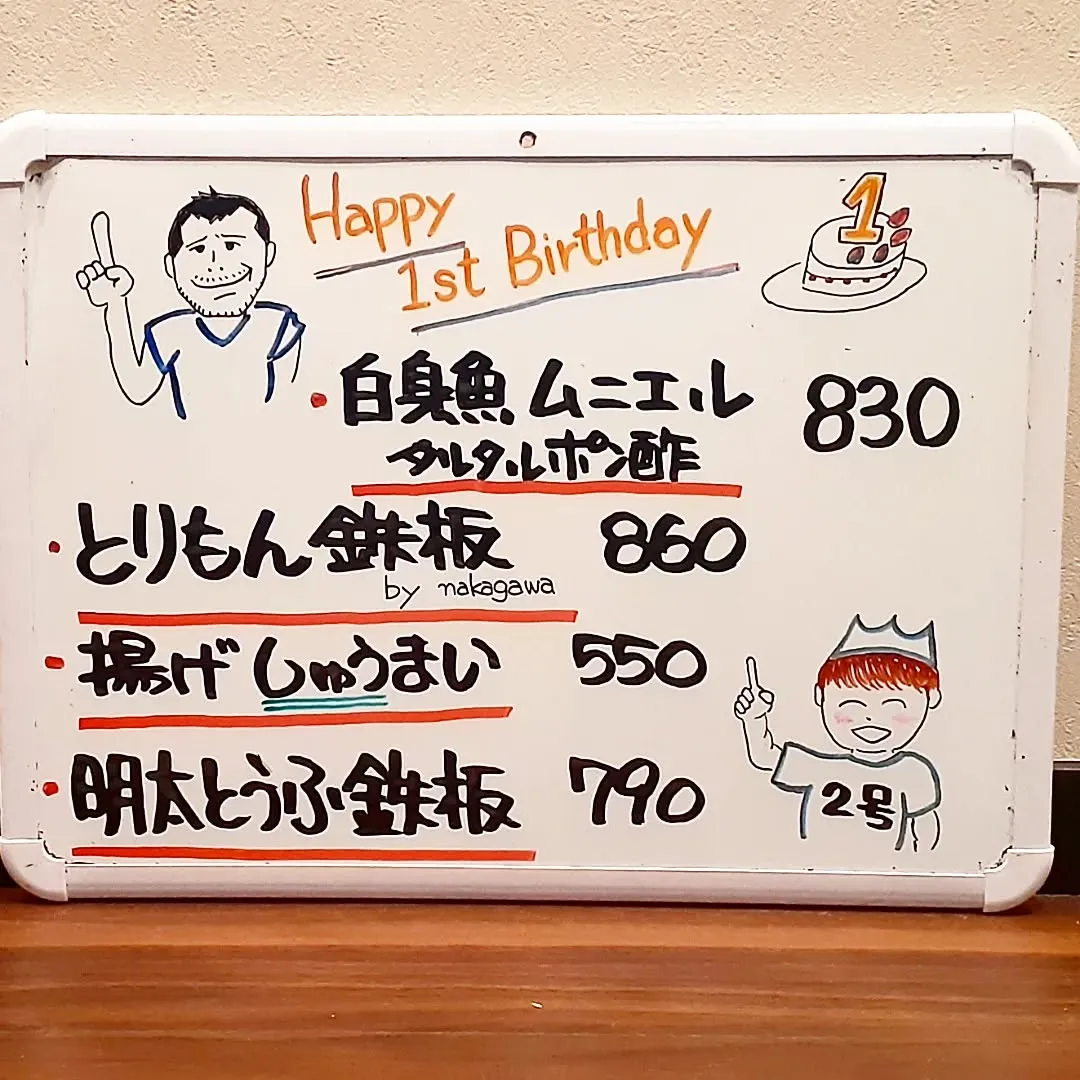 Happy
1st Birthday
1
・白身魚 ムニエル 830
タルタルポン酢
・とりもん鉄板 860
by nakagawa
・揚げしゅうまい 550
・明太とうふ鉄板 790
2号